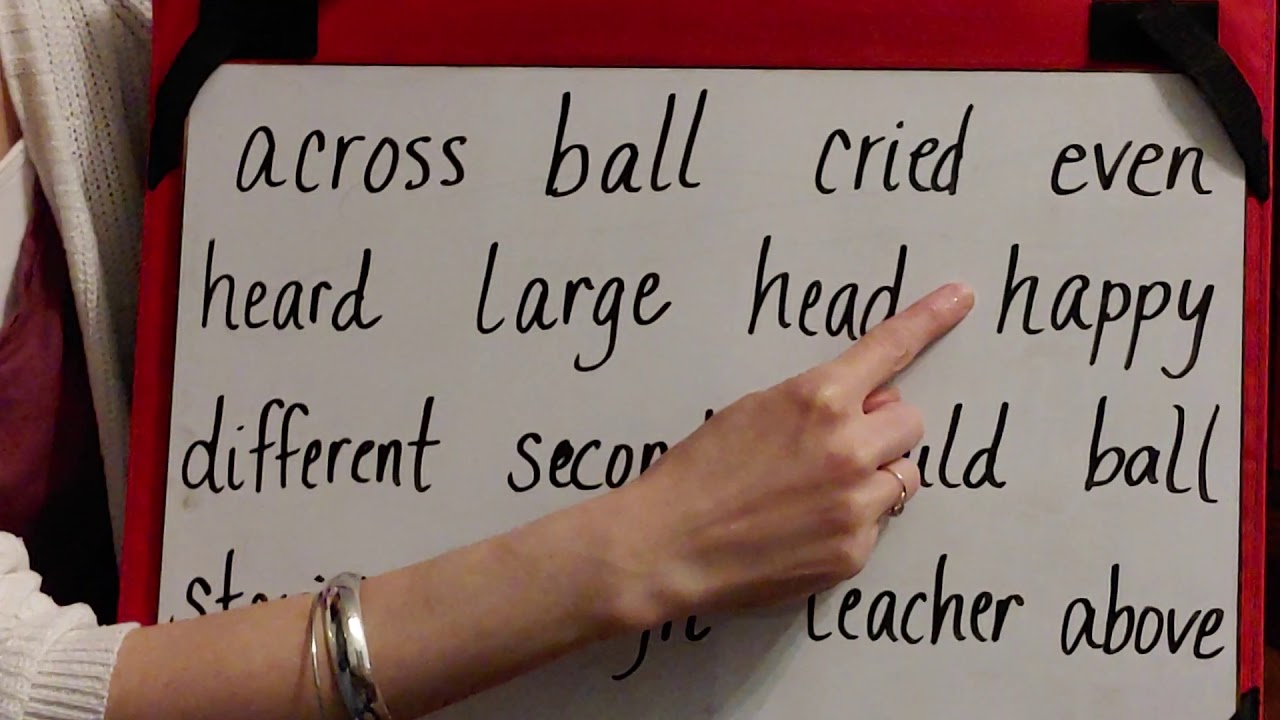 across ball cried even
heard large head happy
different ball
teacher above